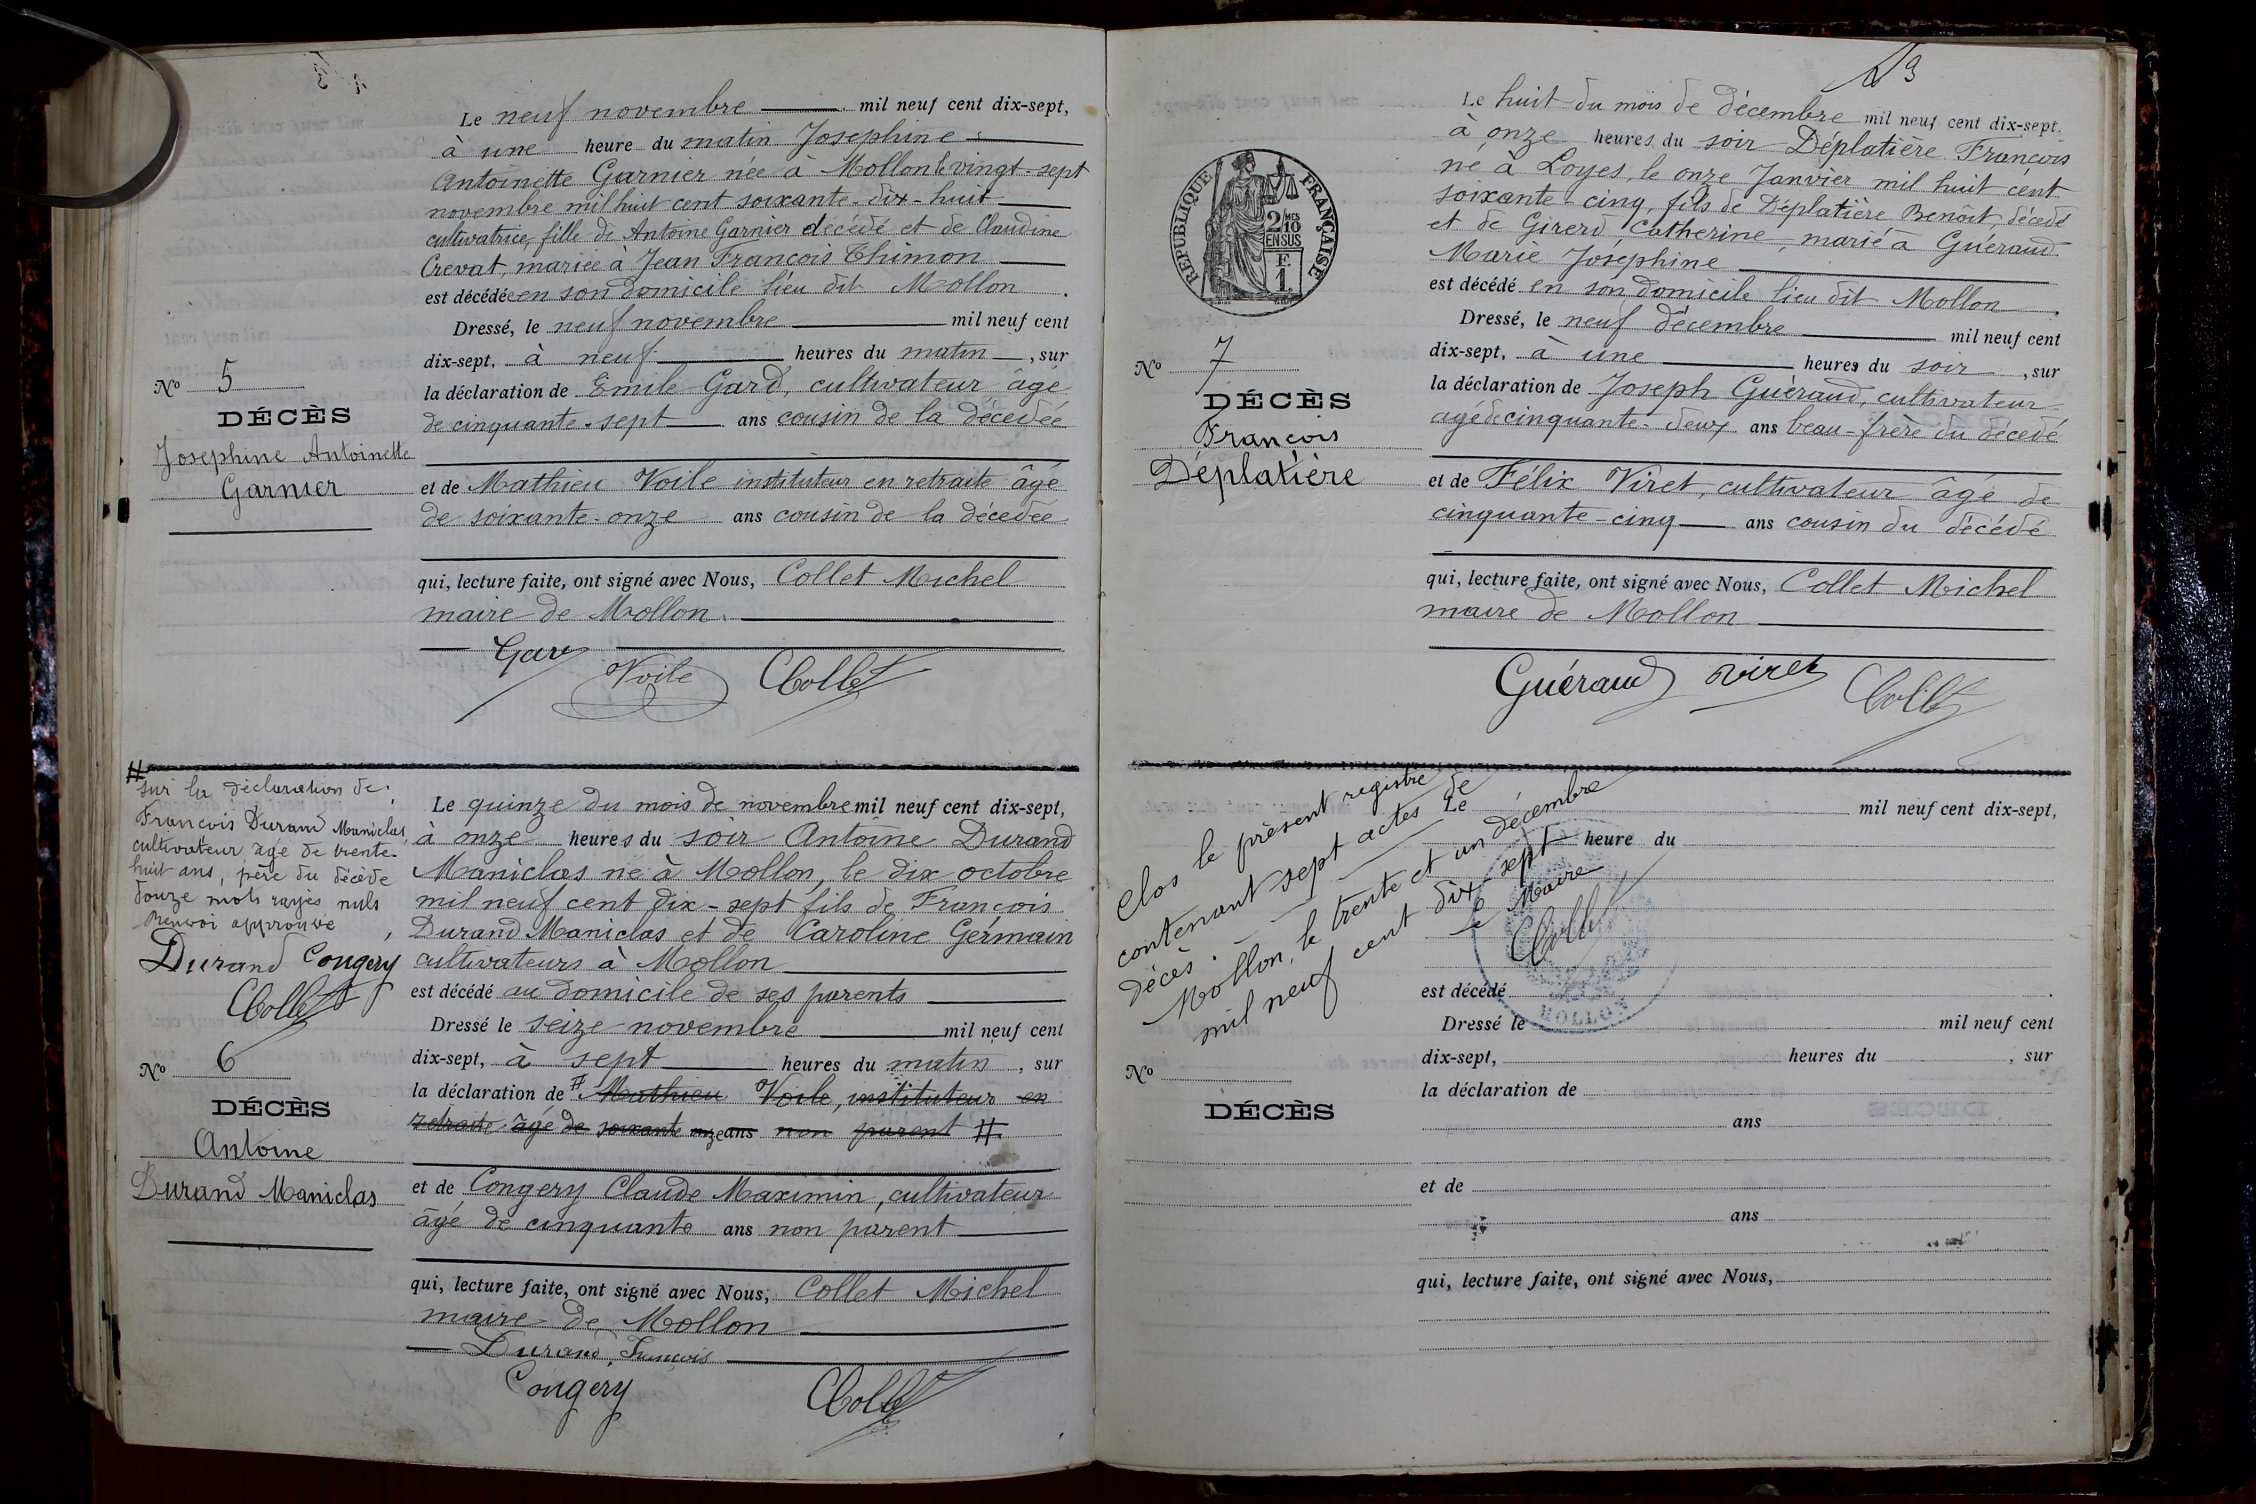 Le neuf novembre mil neuf cent dix-sept,
à une heure du matin Josephine
Antoinette Garnier née à Mollon le vingt-sept
novembre mil huit cent soixante-dix-huit
cultivatrice, fille de Antoine Garnier décédé et de Claudine
Crevat, mariée à Jean François Thimon
est décédée en son domicile lieu dit Mollon.
Dressé, le neuf novembre mil neuf cent
dix-sept, à neuf heures du matin, sur
la déclaration de Emile Gard, cultivateur âgé
de cinquante-sept ans cousin de la décédée
et de Mathieu Voile instituteur en retraite âgé
de soixante-onze ans cousin de la décédée
qui, lecture faite, ont signé avec Nous, Collet Michel
maire de Mollon.
Gard Voile Collet
No 5
DÉCÈS
Josephine Antoinette
Garnier
# sur la déclaration de
François Durand Maniclas,
cultivateur âgé de trente-
huit ans, père du décédé
douze mots rayés nuls
Renvoi approuvé
Durand Congery
Collet
No 6
DÉCÈS
Antoine
Durand Maniclas
Le quinze du mois de novembre mil neuf cent dix-sept,
à onze heures du soir Antoine Durand
Maniclas né à Mollon, le dix octobre
mil neuf cent dix-sept fils de François
Durand Maniclas et de Caroline Germain
cultivateurs à Mollon
est décédé au domicile de ses parents
Dressé le seize novembre mil neuf cent
dix-sept, à sept heures du matin, sur
la déclaration de # Mathieu Voile, instituteur en
retraite âgé de soixante onze ans non parent #
et de Congery Claude Maximin, cultivateur
âgé de cinquante ans non parent
qui, lecture faite, ont signé avec Nous, Collet Michel
maire de Mollon
Durand François
Congery Collet
Le huit du mois de décembre mil neuf cent dix-sept.
à onze heures du soir Déplatière François
né à Loyes, le onze Janvier mil huit cent
soixante cinq, fils de Déplatière Benoit, décédé
et de Girerd Catherine, marié à Guéraud
Marie Joséphine
est décédé en son domicile lieu dit Mollon.
Dressé, le neuf décembre mil neuf cent
dix-sept, à une heures du soir, sur
la déclaration de Joseph Guéraud, cultivateur
agé de cinquante-deux ans beau-frère du décédé
et de Félix Viret, cultivateur âgé de
cinquante-cinq ans cousin du décédé
qui, lecture faite, ont signé avec Nous, Collet Michel
maire de Mollon
Guéraud Viret Collet
RÉPUBLIQUE FRANÇAISE
2 MES
10
EN SUS
F.
1.
No 7
DÉCÈS
François
Déplatière
Clos le présent registre
contenant sept actes de
décès.
Mollon, le trente et un décembre
mil neuf cent dix-sept
Le Maire
Collet
MOLLON
Le mil neuf cent dix-sept,
heure du
est décédé .
Dressé le mil neuf cent
dix-sept, heures du , sur
la déclaration de
ans
et de
ans
qui, lecture faite, ont signé avec Nous,
No
DÉCÈS